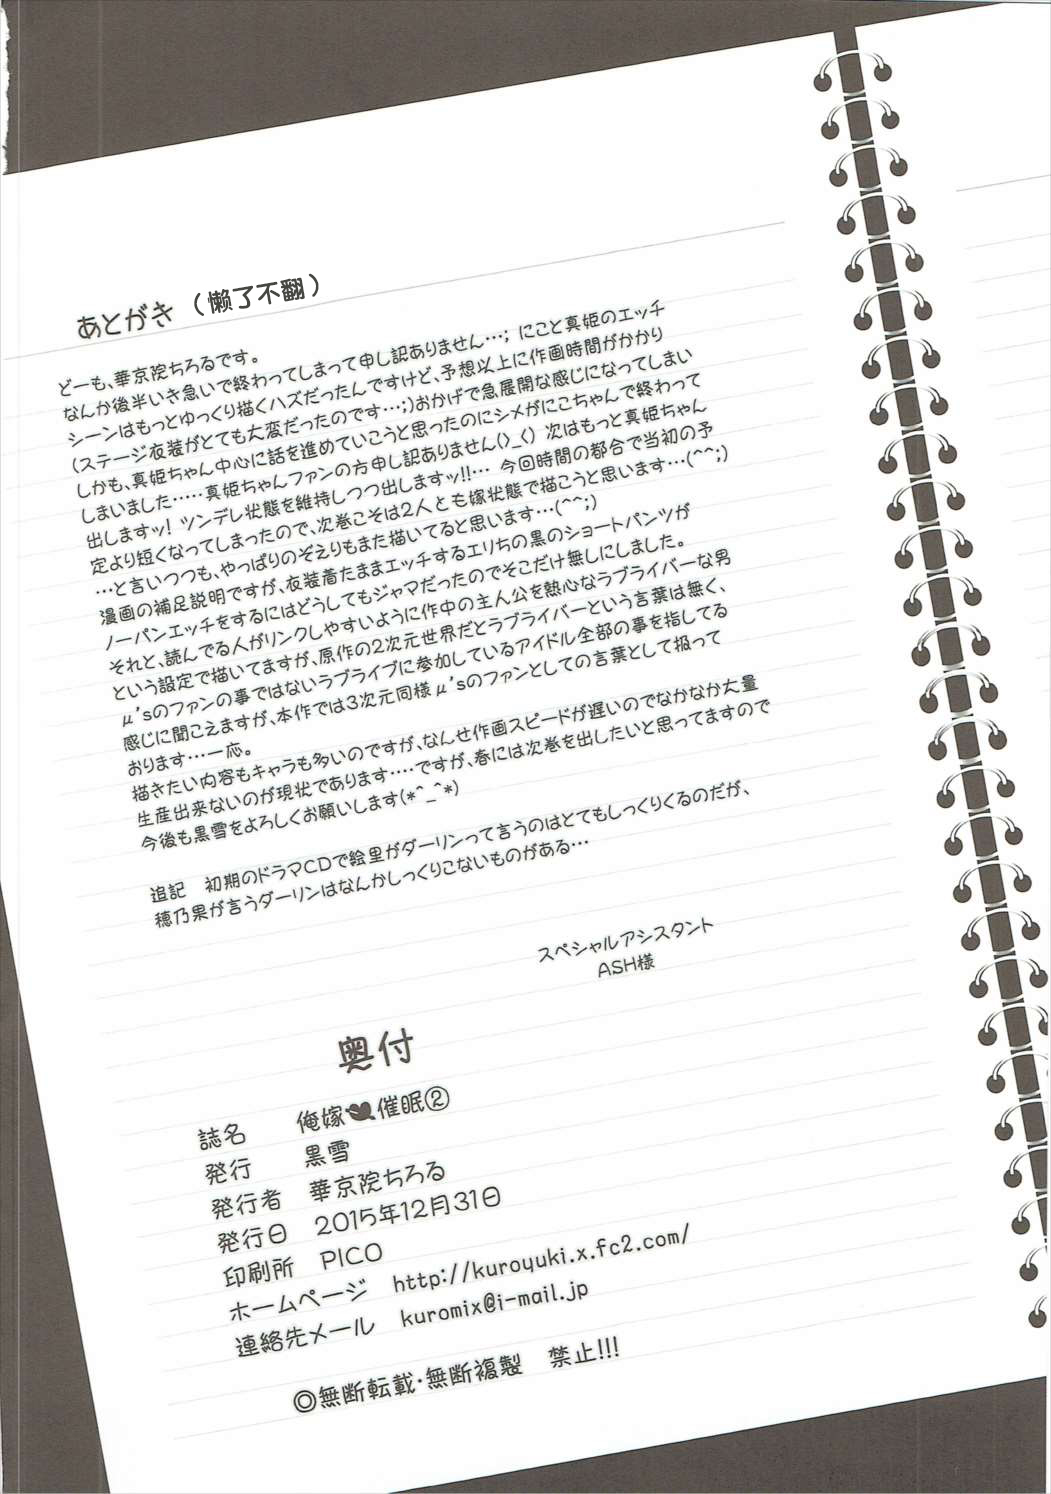 あとがき（懒了不翻）
どーも、華京院ちろるです。
なんか後半いき急いで終わってしまって申し訳ありません…; にこと真姫のエッチ
シーンはもっとゆっくり描くハズだったんですけど、予想以上に作画時間がかかり
(ステージ衣装がとても大変だったのです…;)おかげで急展開な感じになってしまい
しかも、真姫ちゃん中心に話を進めていこうと思ったのにシメがにこちゃんで終わって
しまいました……真姫ちゃんファンの方申し訳ありません(>_<) 次はもっと真姫ちゃん
出しますッ! ツンデレ状態を維持しつつ出しますッ!!… 今回時間の都合で当初の予
定より短くなってしまったので、次巻こそは2人とも嫁状態で描こうと思います…(^^;)
…と言いつつも、やっぱりのぞえりもまた描いてると思います…(^^;)
漫画の補足説明ですが、衣装着たままエッチするエリちの黒のショートパンツが
ノーパンエッチをするにはどうしてもジャマだったのでそこだけ無しにしました。
それと、読んでる人がリンクしやすいように作中の主人公を熱心なラブライバーな男
という設定で描いてますが、原作の2次元世界だとラブライバーという言葉は無く、
μ'sのファンの事ではないラブライブに参加しているアイドル全部の事を指してる
感じに聞こえますが、本作では3次元同様μ'sのファンとしての言葉として扱って
おります…一応。
描きたい内容もキャラも多いのですが、なんせ作画スピードが遅いのでなかなか大量
生産出来ないのが現状であります‥‥ですが、春には次巻を出したいと思ってますので
今後も黒雪をよろしくお願いします(*^_^*)
追記　初期のドラマCDで絵里がダーリンって言うのはとてもしっくりくるのだが、
穂乃果が言うダーリンはなんかしっくりこないものがある…
スペシャルアシスタント
ASH様
奥付
誌名　俺嫁催眠②
発行　黒雪
発行者　華京院ちろる
発行日　2015年12月31日
印刷所　PICO
ホームページ　http://kuroyuki.x.fc2.com/
連絡先メール　kuromix@i-mail.jp
◎無断転載・無断複製　禁止!!!